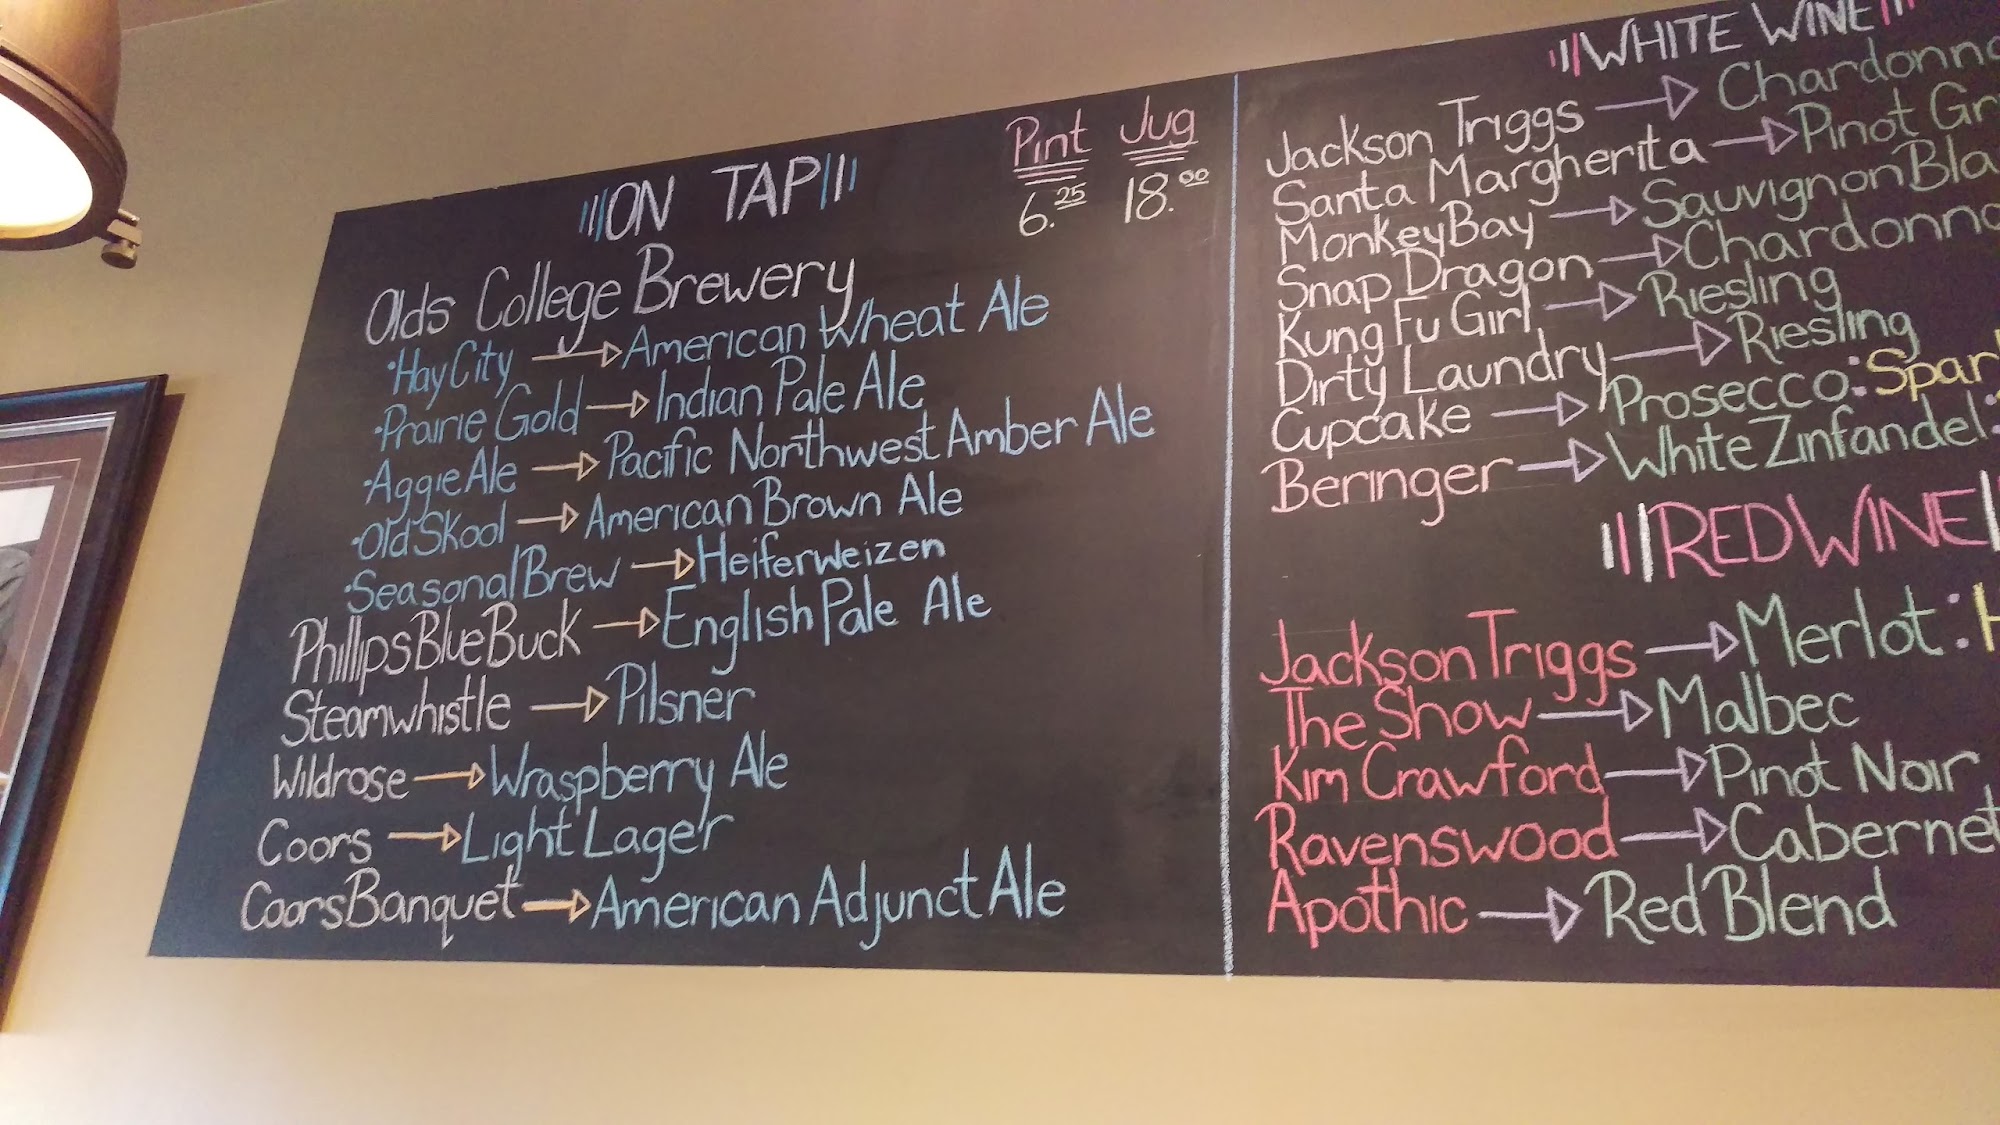 ON TAP
Pint Jug
6.25 18.00
Olds College Brewery
•Hay City → American Wheat Ale
•Prairie Gold → Indian Pale Ale
•Aggie Ale → Pacific Northwest Amber Ale
•Old Skool → American Brown Ale
•Seasonal Brew → Heiferweizen
Phillips Blue Buck → English Pale Ale
Steamwhistle → Pilsner
Wildrose → Wraspberry Ale
Coors → Light Lager
Coors Banquet → American Adjunct Ale
WHITE WINE
Jackson Triggs →
Santa Margherita → Pinot
Monkey Bay → Sauvignon
Snap Dragon →
Kung Fu Girl → Riesling
Dirty Laundry → Riesling
Cupcake → Prosecco:
Beringer → White Zinfandel:
RED WINE
Jackson Triggs → Merlot:
The Show → Malbec
Kim Crawford → Pinot Noir
Ravenswood → Cabernet
Apothic → Red Blend